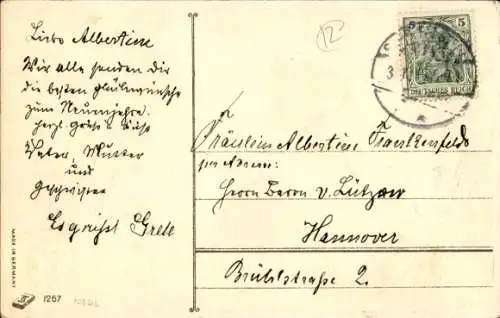 Liebe Albertine
Wir alle senden Dir
die besten Glückwünsche
zum Neuenjahre.
herzl. Grüße u. Küsse
Vater, Mutter
und
Geschwister
Es grüßt Grete
12
5
DEUTSCHES REICH
Fräulein Albertine
per Adresse:
Herrn Baron v. Lützow
Hannover
Brühlstraße 2.
MADE IN GERMANY
1257